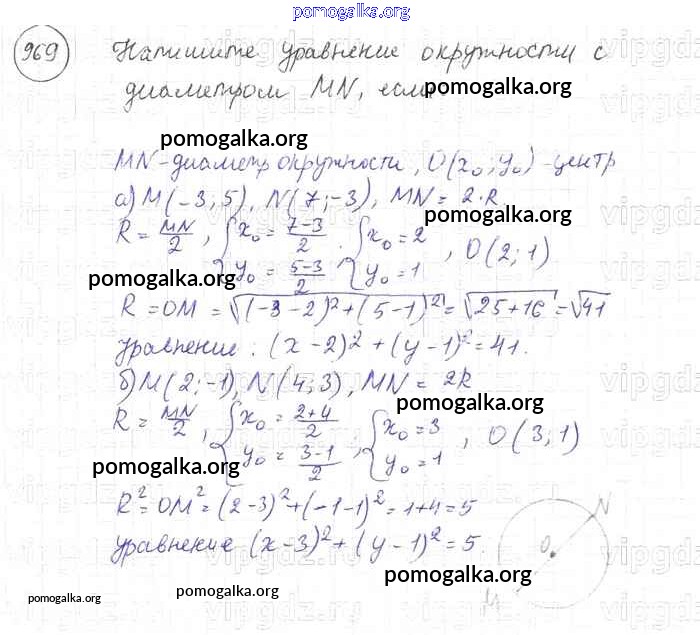 pomogalka.org
969 Напишите уравнение окружности с
диаметром MN, если
pomogalka.org
pomogalka.org
MN-диаметр окружности, O(x₀; y₀) -центр
а) M(-3; 5), N(7; -3), MN = 2·R
pomogalka.org
R = MN/2, { x₀ = (7-3)/2 ; y₀ = (5-3)/2 ; { x₀ = 2 ; y₀ = 1 , O(2; 1)
pomogalka.org
R = OM = √((-3-2)² + (5-1)²) = √(25+16) = √41
уравнение: (x-2)² + (y-1)² = 41.
б) M(2; -1), N(4; 3), MN = 2R
pomogalka.org
R = MN/2, { x₀ = (2+4)/2 ; y₀ = (3-1)/2 ; { x₀ = 3 ; y₀ = 1 , O(3; 1)
pomogalka.org
R² = OM² = (2-3)² + (-1-1)² = 1+4 = 5
уравнение (x-3)² + (y-1)² = 5.
N
O
M
pomogalka.org
pomogalka.org
pomogalka.org